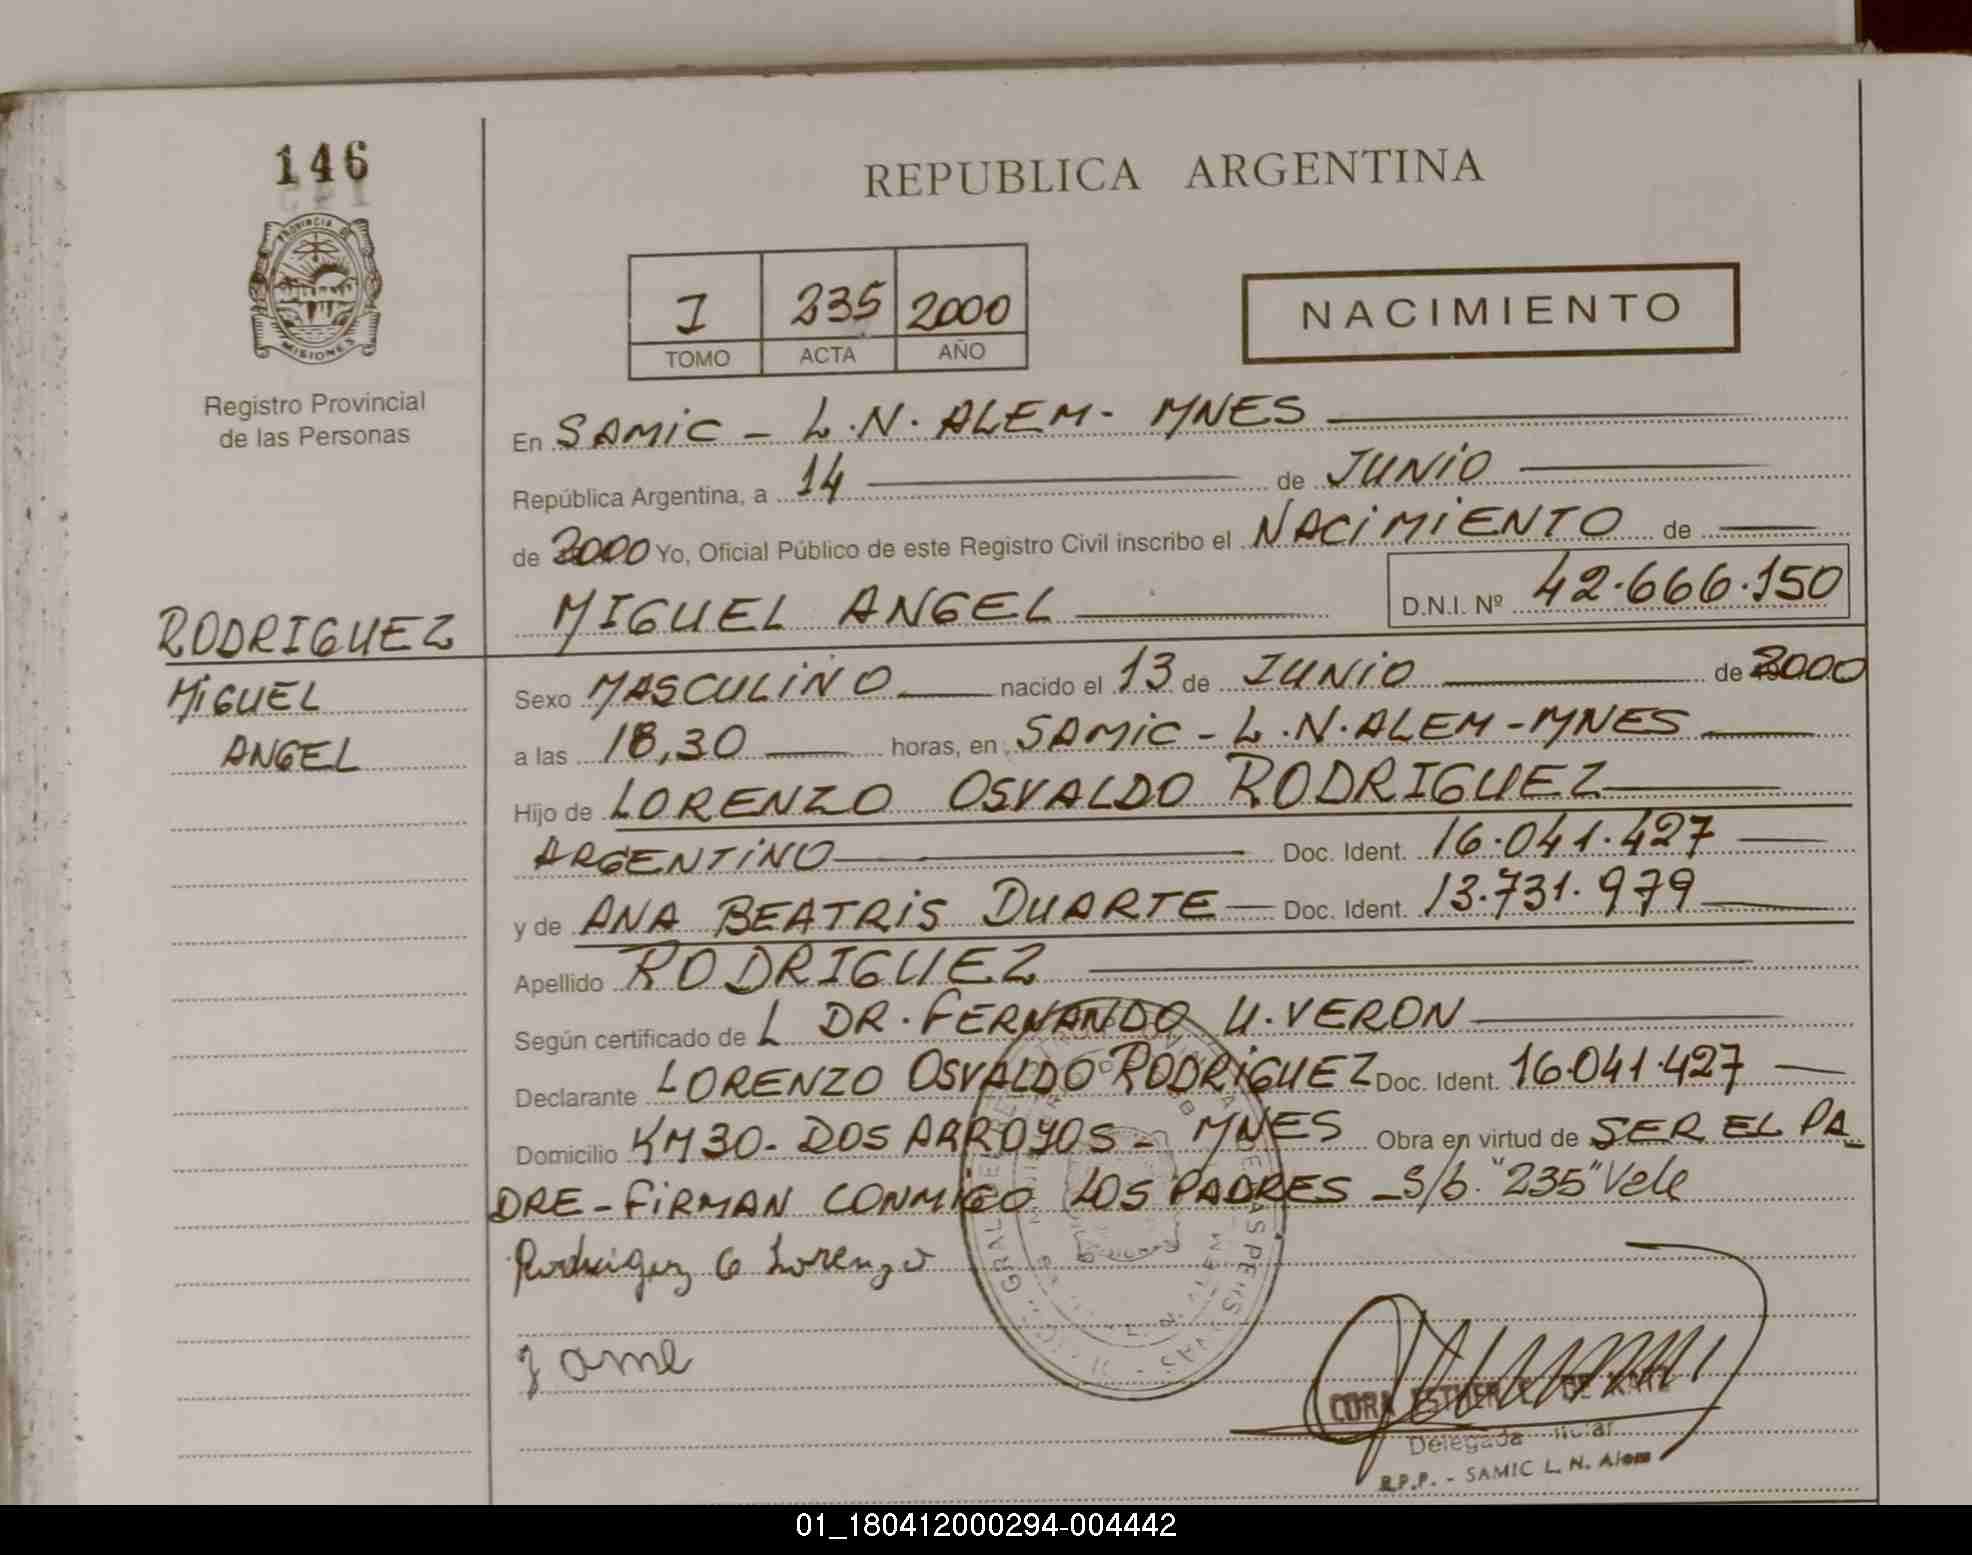 146
REPUBLICA ARGENTINA
PROVINCIA DE
MISIONES
Registro Provincial
de las Personas
I 235 2000
TOMO ACTA AÑO
NACIMIENTO
En SAMIC - L.N. ALEM - MNES
República Argentina, a 14 de JUNIO
de 2000 Yo, Oficial Público de este Registro Civil inscribo el NACIMIENTO de
MIGUEL ANGEL D.N.I. Nº 42.666.150
RODRIGUEZ
MIGUEL
ANGEL
Sexo MASCULINO nacido el 13 de JUNIO de 2000
a las 18,30 horas, en SAMIC - L.N. ALEM - MNES
Hijo de LORENZO OSVALDO RODRIGUEZ
ARGENTINO Doc. Ident. 16.041.427
y de ANA BEATRIS DUARTE Doc. Ident. 13.731.979
Apellido RODRIGUEZ
Según certificado de L DR. FERNANDO U. VERON
Declarante LORENZO OSVALDO RODRIGUEZ Doc. Ident. 16.041.427
Domicilio KM 30 - DOS ARROYOS - MNES Obra en virtud de SER EL PA_
DRE - FIRMAN CONMIGO LOS PADRES - S/b. "235" Vale
Rodriguez O Lorenzo
CORA ESTHER DE
Delegada
R.P.P. - SAMIC L. N. Alem
01_180412000294-004442